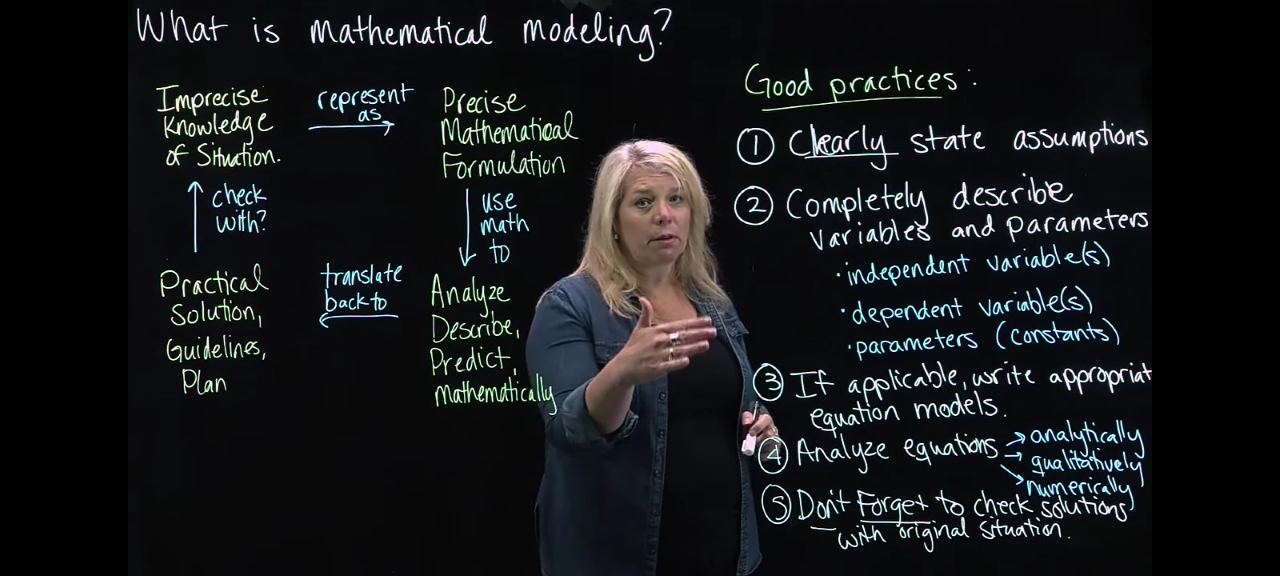 What is mathematical modeling?
Imprecise
Knowledge
of Situation.
represent
as
Precise
Mathematical
Formulation
check
with?
use
math
to
Practical
Solution,
Guidelines,
Plan
translate
back to
Analyze
Describe,
Predict,
mathematically
Good practices:
① Clearly state assumptions
② Completely describe
variables and parameters
• independent variable(s)
• dependent variable(s)
• parameters (constants)
③ If applicable, write appropriat
equation models.
④ Analyze equations
analytically
qualitatively
numerically
⑤ Don't Forget to check solutions
with original situation.